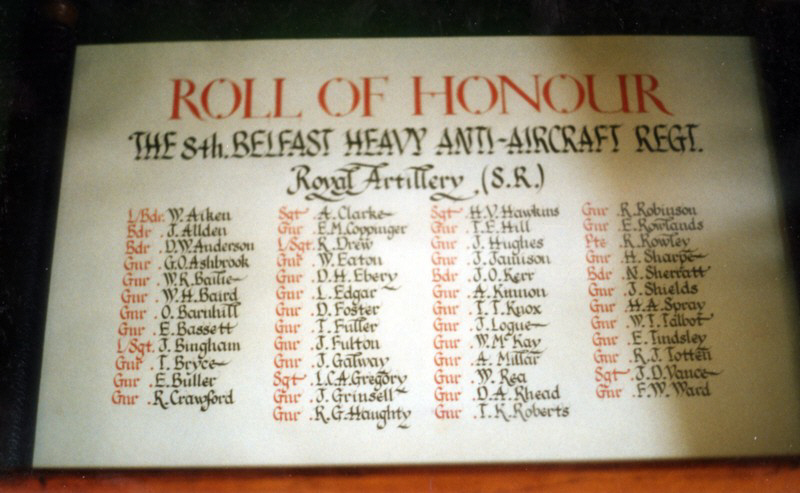 ROLL OF HONOUR
THE 8th. BELFAST HEAVY ANTI-AIRCRAFT REGT.
Royal Artillery (S.R.)
L/Bdr. W. Aiken
Bdr . J. Allden
Bdr . D.W. Anderson
Gnr . G.O. Ashbrook
Gnr . W.R. Bailie
Gnr . W.H. Baird
Gnr . O. Barnhill
Gnr . E. Bassett
L/Sgt. J. Bingham
Gnr . T. Bryce
Gnr . E. Buller
Gnr . R. Crawford
Sgt . A. Clarke
Gnr . E.M. Coppinger
L/Sgt. R. Drew
Gnr . W. Eaton
Gnr . D.H. Ebery
Gnr . L. Edgar
Gnr . D. Foster
Gnr . T. Fuller
Gnr . J. Fulton
Gnr . J. Galway
Sgt . L.C.A. Gregory
Gnr . J. Grinsell
Gnr . R.G. Haughty
Sgt . H.V. Hawkins
Gnr . T.E. Hill
Gnr . J. Hughes
Gnr . J. Jamison
Bdr . J.O. Kerr
Gnr . A. Kinnon
Gnr . T.T. Knox
Gnr . J. Logue
Gnr . W. McKay
Gnr . A. Millar
Gnr . W. Rea
Gnr . D.A. Rhead
Gnr . T.K. Roberts
Gnr . R. Robinson
Gnr . E. Rowlands
Pte . R. Rowley
Gnr . H. Sharpe
Bdr . N. Sherratt
Gnr . J. Shields
Gnr . H.A. Spray
Gnr . W.T. Talbot
Gnr . E. Tindsley
Gnr . R.J. Totten
Sgt . J.D. Vance
Gnr . F.W. Ward